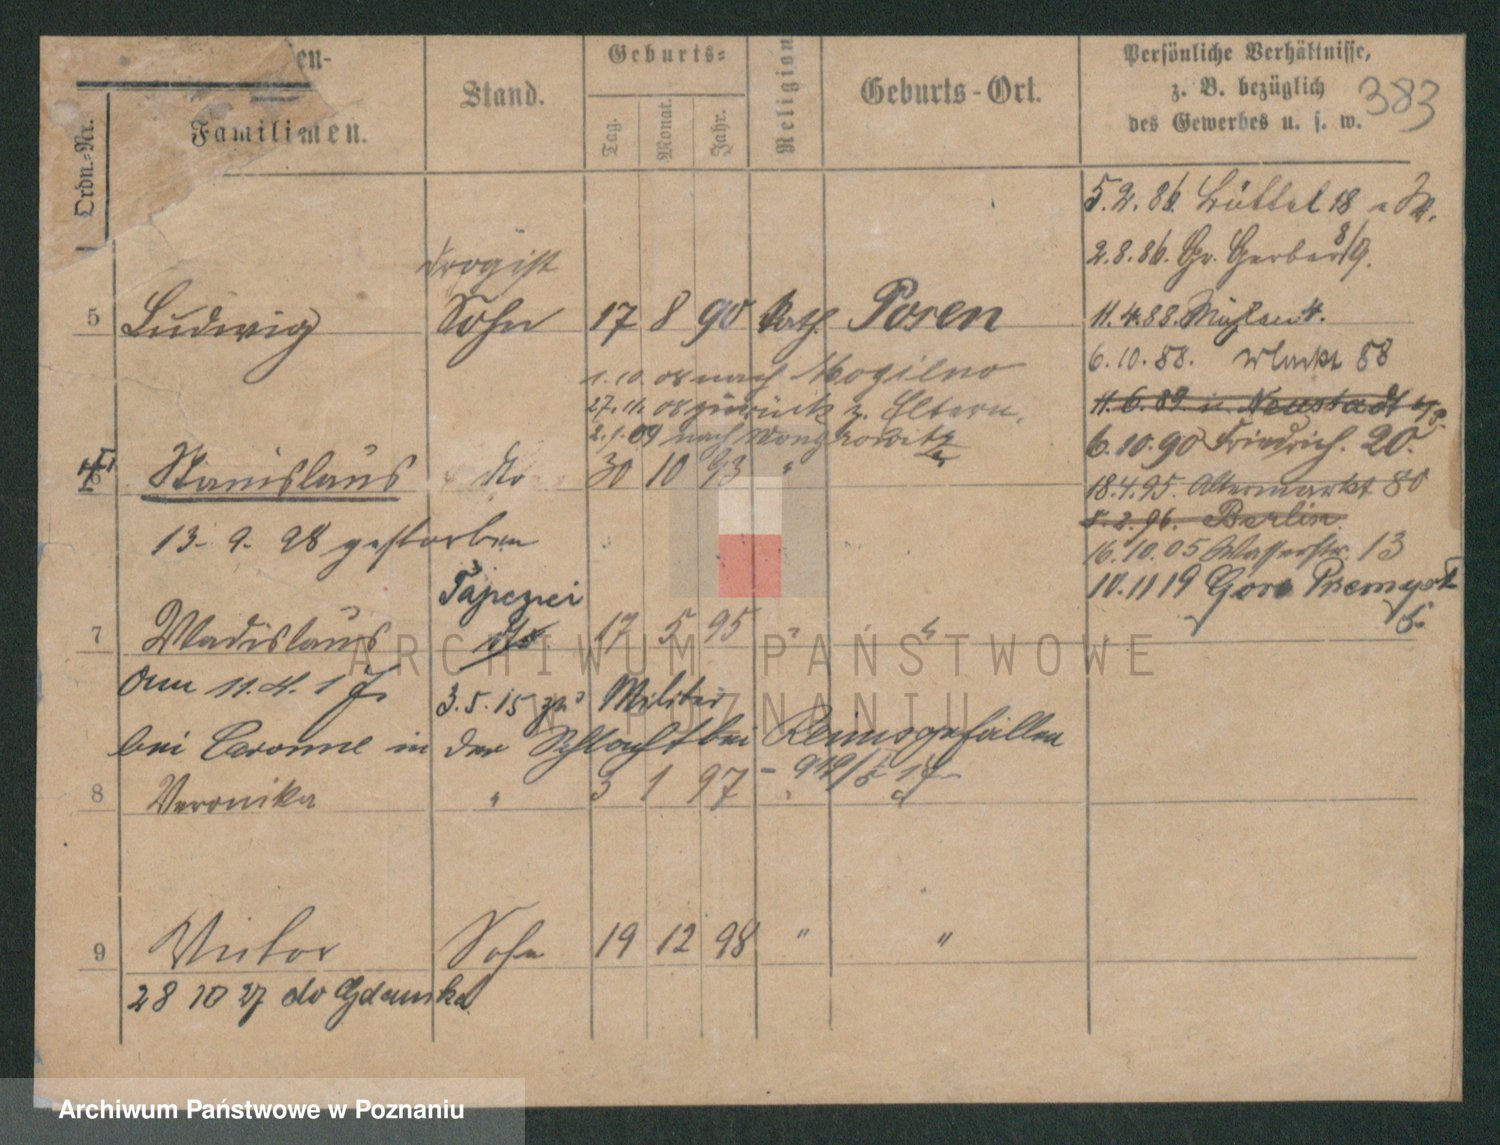 en-
Familiennamen.
Ordn.-Nr.
Stand.
Geburts-
Tag.
Monat.
Jahr.
Religion
Geburts-Ort.
Persönliche Verhältnisse,
z. B. bezüglich
des Gewerbes u. s. w.
383
5.2.86. Büttel 18
2.8.86. Gr. Gerber 8/9.
drogist
5 Ludwig Sohn 17 8 90 Kath. Posen
11.4.88. Mühlen 4.
6.10.88. 88
1.10.08 nach Mogilno
27.11.08 zurück z. Eltern.
2.1.09 nach Wongrowitz
11.6.89 Neustadt
6.10.90 Friedrich. 20.
Stanislaus dto 30 10 93 "
18.4.95. Altermarkt 80
8.2.96. Berlin
13.9.98 gestorben
16.10.05 Wasserstr. 13
10.11 19 Gora Przemysł
5.
Tapezier
7 Wladislaus dto 17 5 95 " "
3.5.15 zu Militär
bei in der Schlacht bei Reims gefallen
8 Veronika " 3 1 97 "
9 Victor Sohn 19 12 98 " "
28 10 27 do Gdańska
ARCHIWUM PAŃSTWOWE
W POZNANIU
Archiwum Państwowe w Poznaniu